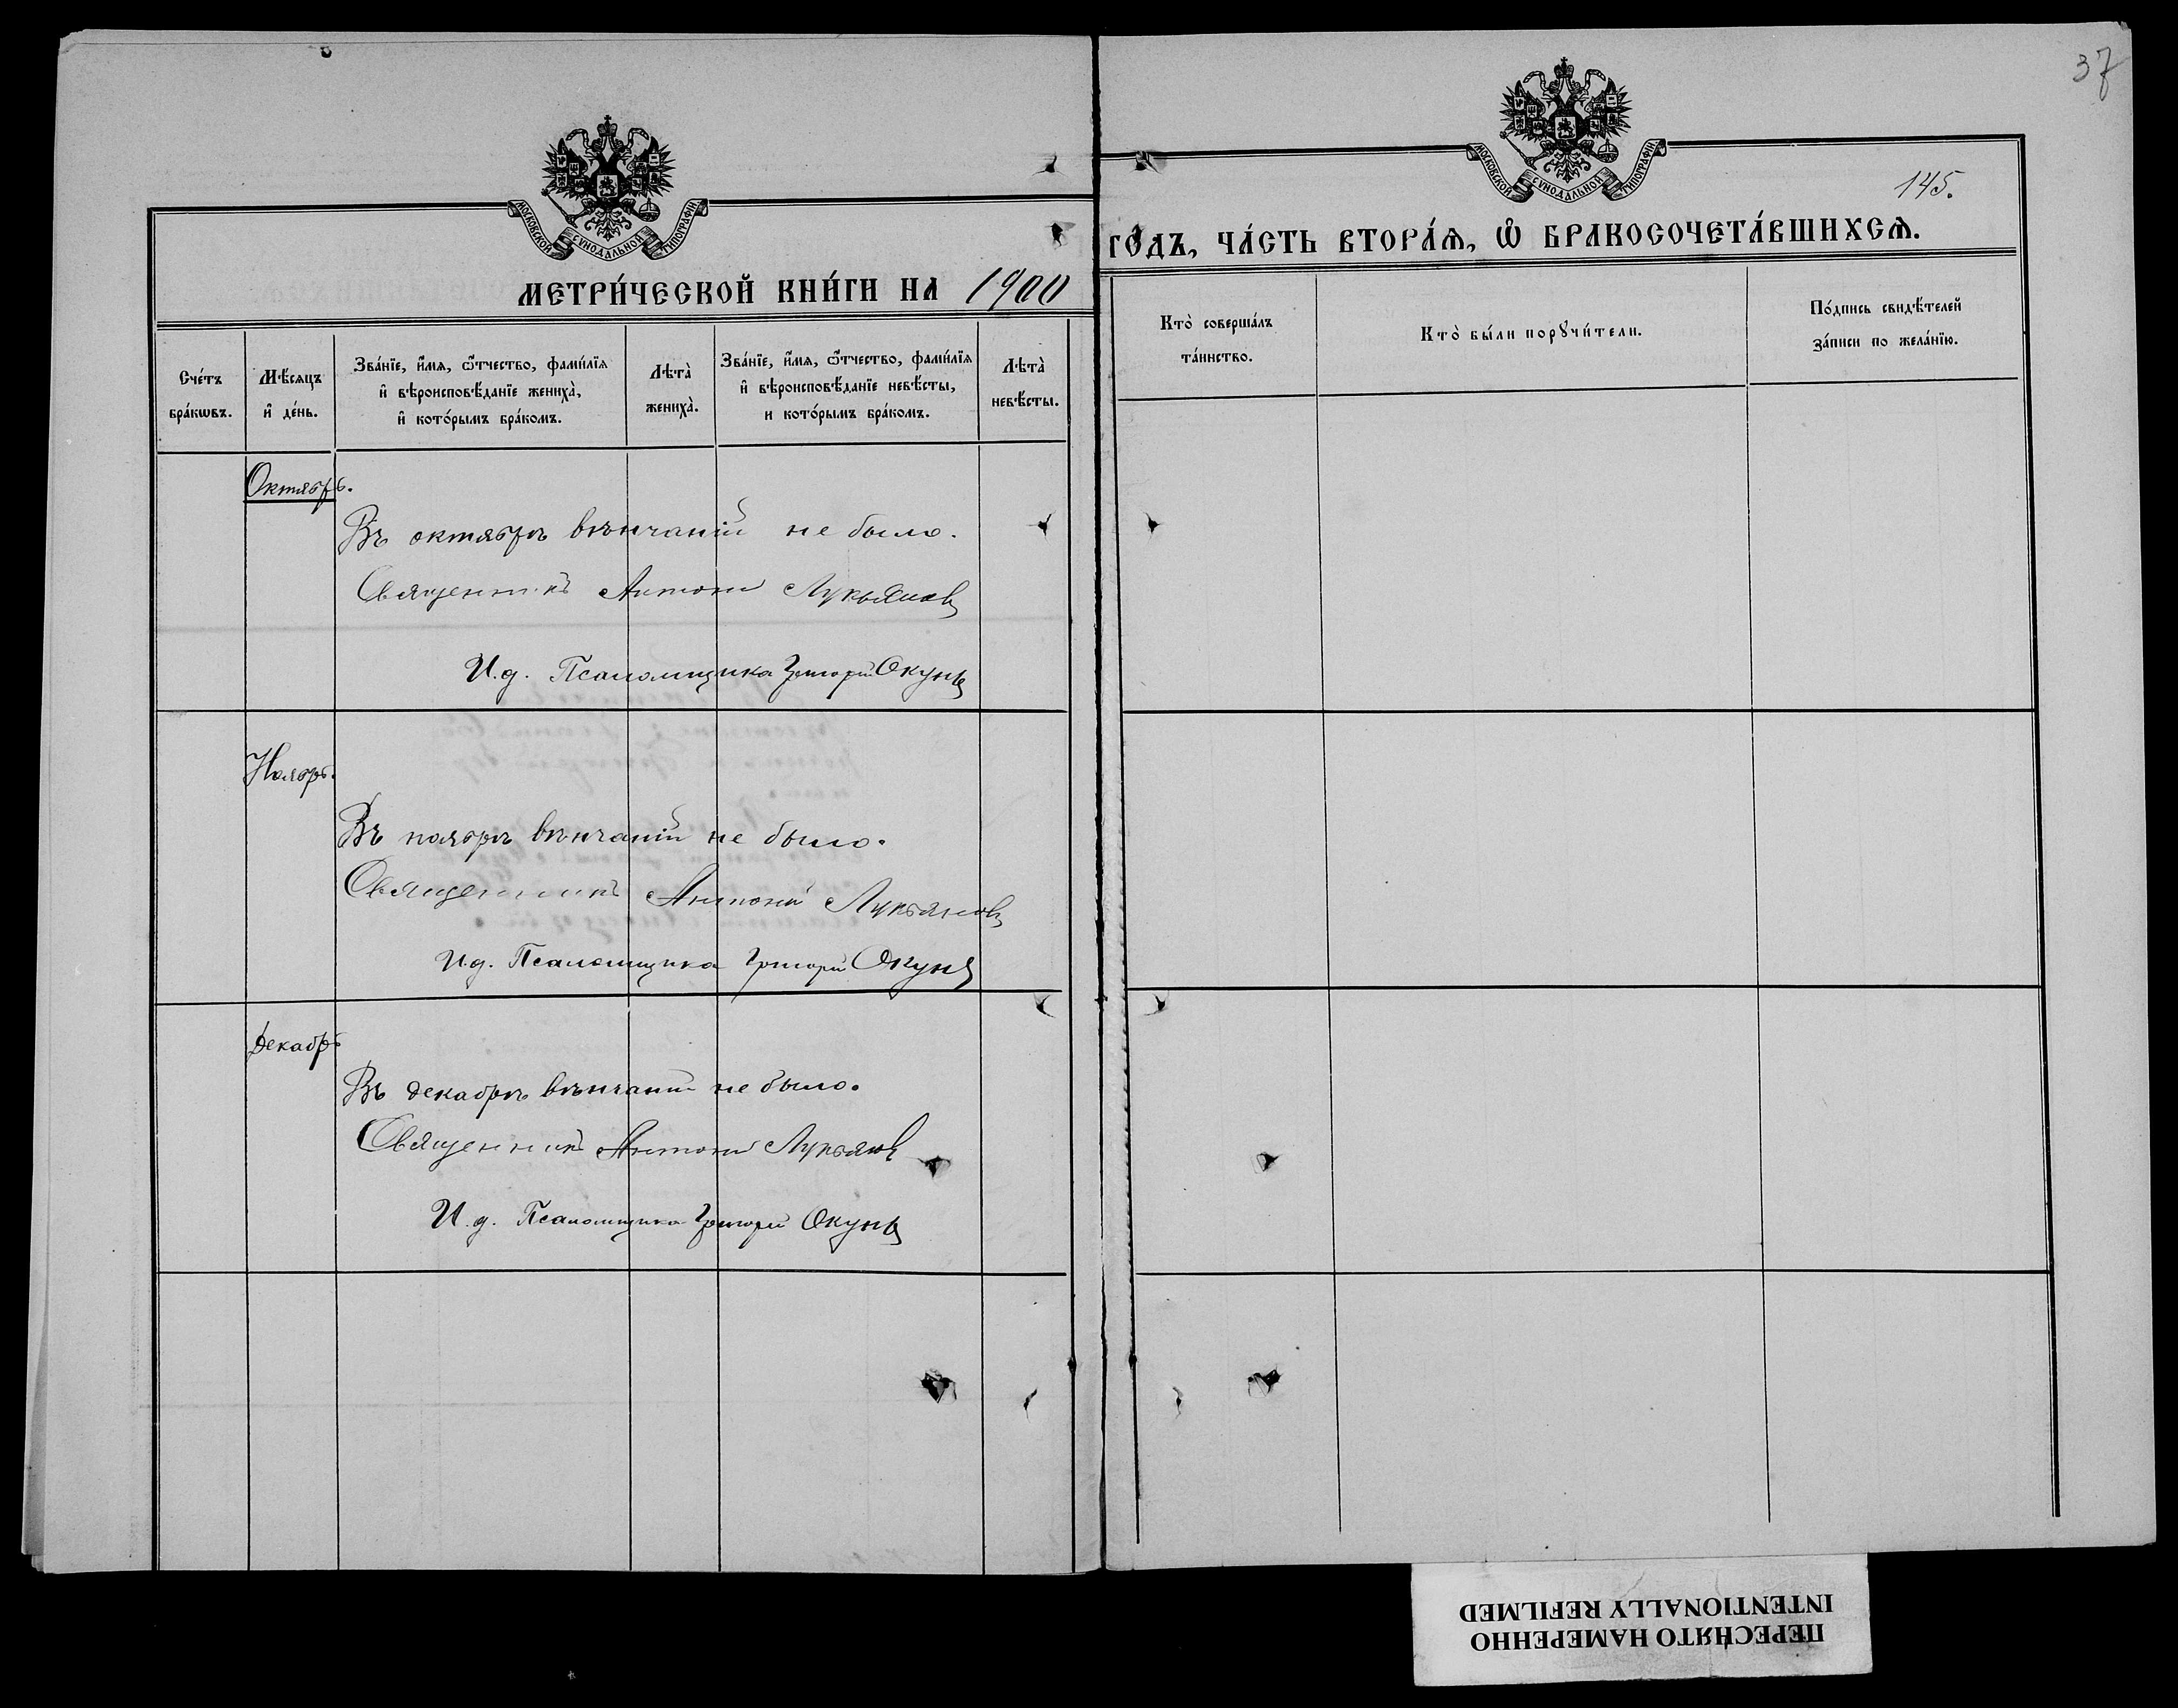 37
МОСКОВСКОЙ СУНОДАЛЬНОЙ ТИПОГРАФІИ
МЕТРИ́ЧЕСКОЙ КНИ́ГИ НА 1900
Сче́тъ бра́кѡвъ.
Мѣ́сяцъ и҆ де́нь.
Зва́нїе, и҆́мѧ, ѻ҆́тчество, фами́лїѧ
и҆ вѣроисповѣ́данїе жениха̀,
и҆ кото́рымъ бра́комъ.
Лѣта̀ жениха̀.
Зва́нїе, и҆́мѧ, ѻ҆́тчество, фами́лїѧ
и҆ вѣроисповѣ́данїе невѣ́сты,
и кото́рымъ бра́комъ.
Лѣта̀ невѣ́сты.
Октябрь.
Въ октябрѣ вѣнчаній не было.
Священникъ Антоній Лукьяновъ
И.д. Псаломщика Григорій Окунь
Ноябрь.
Въ ноябрѣ вѣнчаній не было.
Священникъ Антоній Лукьяновъ
И.д. Псаломщика Григорій Окунь
Декабрь
Въ декабрѣ вѣнчаній не было.
Священникъ Антоній Лукьяновъ
И.д. Псаломщика Григорій Окунь
МОСКОВСКОЙ СУНОДАЛЬНОЙ ТИПОГРАФІИ
145.
ГО́ДЪ, ЧА́СТЬ ВТОРА́Ѧ, Ѽ БРАКОСОЧЕТА́ВШИХСѦ.
Кто̀ соверша́лъ
та́инство.
Кто̀ бы́ли порꙋчи́тели.
По́дпись свидѣ́телей
за́писи по жела́нїю.
ПЕРЕСНЯТО НАМЕРЕННО
INTENTIONALLY REFILMED